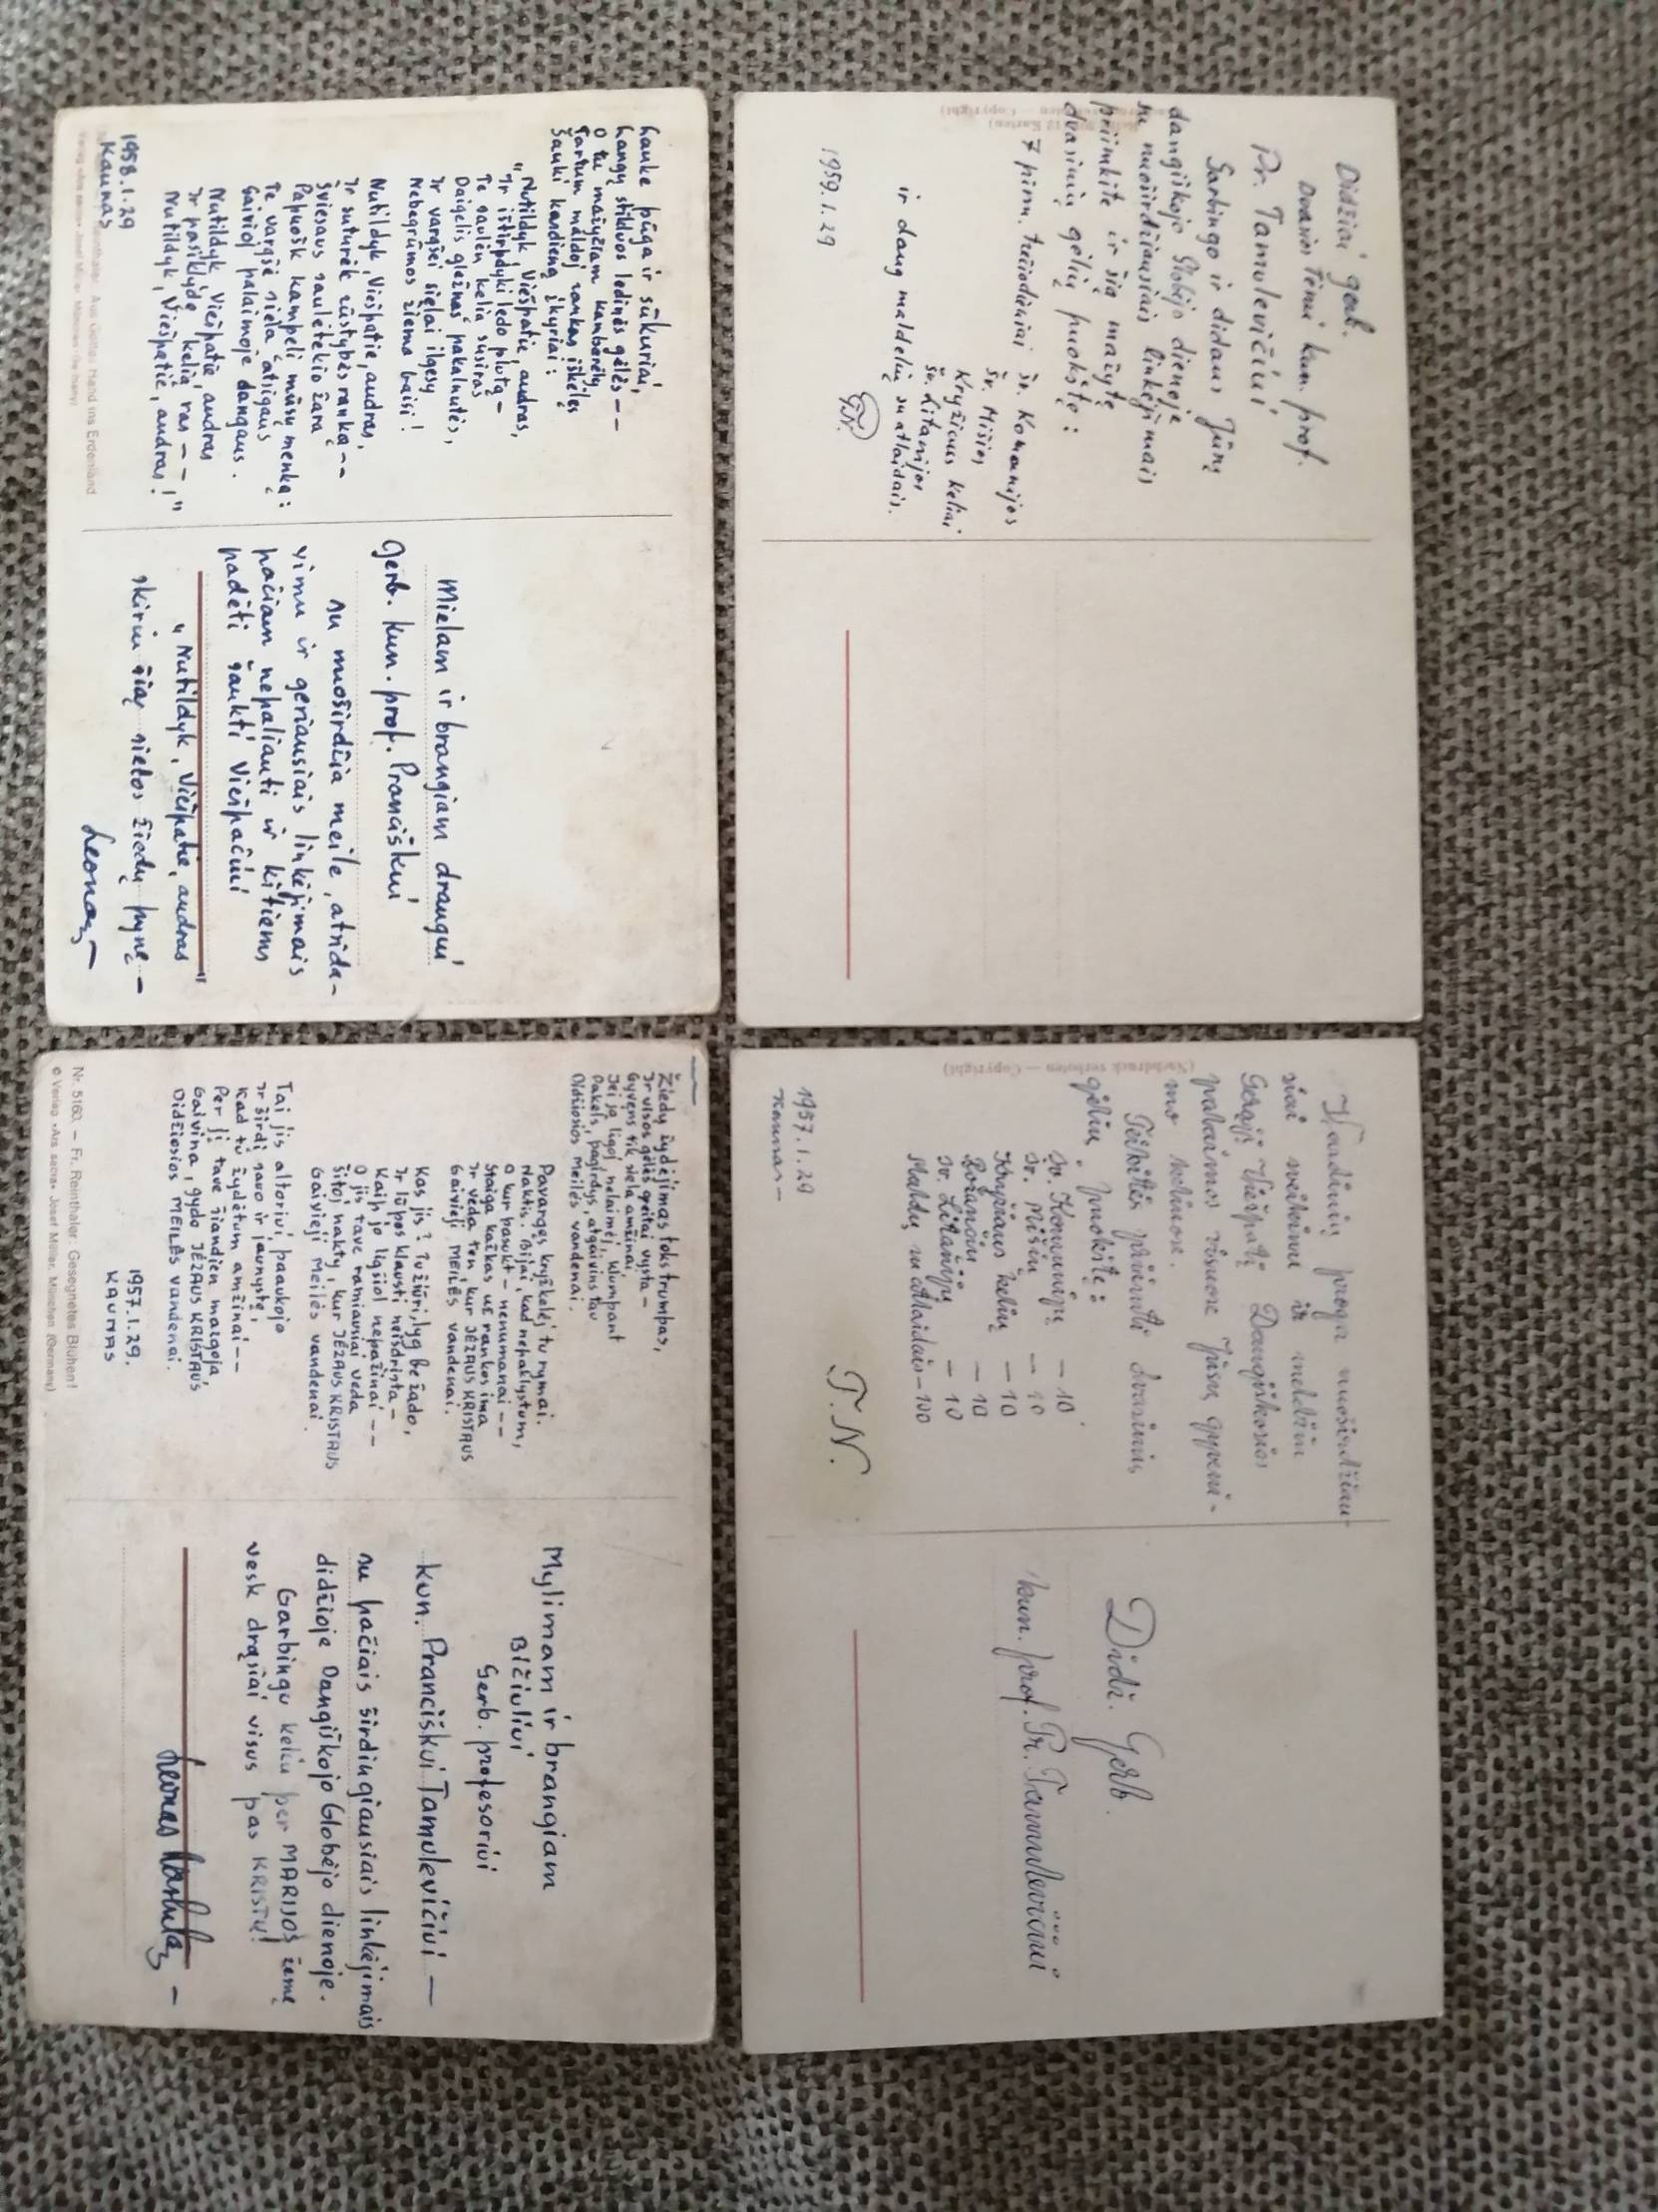 Lauke pūga ir sūkuriai,
Langų stikluos ledinės gėlės —
O tu mažyčiam kambarėly
Tartum maldoj rankas iškėlęs
Šauki kasdieną įkyriai:
„Nutildyk, Viešpatie, audras,
Ir ištirpdyki ledo plutą –
Te saulėn kelią susiras
Daigelis gležnas pakalnutės,
Ir vargšei sielai ilgesy
Nebegrūmos žiema baisi!
Nutildyk, Viešpatie, audras,
Ir suturėk rūstybės ranką --
Šviesaus saulėtekio žara
Papuošk kampelį mūsų menką:
Te vargšė siela atsigaus
Gaivioj palaimoje dangaus.
Nutildyk, Viešpatie, audras
Ir pasiklydę kelią ras — — !
Nutildyk, Viešpatie, audras!"
1958.1.29
Kaunas
Reinthaler: Aus Gottes Hand ins Erdenland
Verlag »Ars sacra« Josef Müller München
Mielam ir brangiam draugui
Gerb. kun. prof. Pranciškui
su nuoširdžia meile, atsida-
vimu ir geriausiais linkėjimais
pačiam nepaliauti ir kitiems
padėti šaukti Viešpačiui
„Nutildyk, Viešpatie, audras"
skiriu šią sielos žiedų pynę —
Leonas —
Didžiai gerb.
Dvasios Tėvui kun. prof.
Pr. Tamulevičiui
Garbingo ir didaus Jūsų
dangiškojo Globėjo dienoje
su nuoširdžiausiais linkėjimais
priimkite ir šią mažytę
dvasinių gėlių puokštę:
7 pirm. trečiadieniai šv. Komunijos
šv. Mišios
Kryžiaus keliai
šv. Litanijos
ir daug maldelių su atlaidais.
1959.1.29
(Copyright)
Žiedų žydėjimas toks trumpas,
Ir visos gėlės greitai vysta –
Gyvens tik siela amžinai,
Jei ją ligoj, nelaimėj, klumpant
Pakels, pagirdys, atgaivins tau
Didžiosios Meilės vandenai.
Pavargęs kryžkelėj tu rymai.
Naktis. Bijai, kad nepaklystum,
O kur pasukt – nenumanai --
Staiga kažkas už rankos ima
Ir veda ten, kur JĖZAUS KRISTAUS
Gaivieji MEILĖS vandenai.
Kas jis? Tu žiūri, lyg be žado,
Ir lūpos klausti neišdrįsta –
Kaip jo ligšiol nepažinai --
O jis tave ramiausiai veda
Šitoj nakty, kur JĖZAUS KRISTAUS
Gaivieji Meilės vandenai.
Tai jis altoriui paaukojo
Ir širdį savo ir jaunystę,
Kad tu žydėtum amžinai --
Per jį tave šiandien mazgoja
Gaivina, gydo JĖZAUS KRISTAUS
Didžiosios MEILĖS vandenai.
1957.1.29.
KAUNAS
Nr. 5160. – Fr. Reinthaler: Gesegnetes Blühen!
© Verlag »Ars sacra« Josef Müller, München (Germany)
Mylimam ir brangiam
Bičiuliui
Gerb. profesoriui
kun. Pranciškui Tamulevičiui —
su pačiais širdingiausiais linkėjimais
didžioje Dangiškojo Globėjo dienoje.
Garbingu keliu per MARIJOS žemę
vesk drąsiai visus pas KRISTŲ!
Leonas —
Vardinių proga nuoširdžiau-
siai sveikinu ir meldžiu
Gerąjį Viešpatį Dangiškosios
palaimos visuose Jūsų gyveni-
mo keliuose.
Teiksitės priimti dvasinių
gėlių puokštę:
Šv. Komunijų — 10
Šv. Mišių — 10
Kryžiaus kelių — 10
Rožančių — 10
Šv. Litanijų — 10
Maldų su atlaidais – 100
T. N.
1957.1.29
Kaunas –
(Nachdruck verboten — Copyright)
Didž. Gerb.
kun. prof. Pr. Tamulevičiui